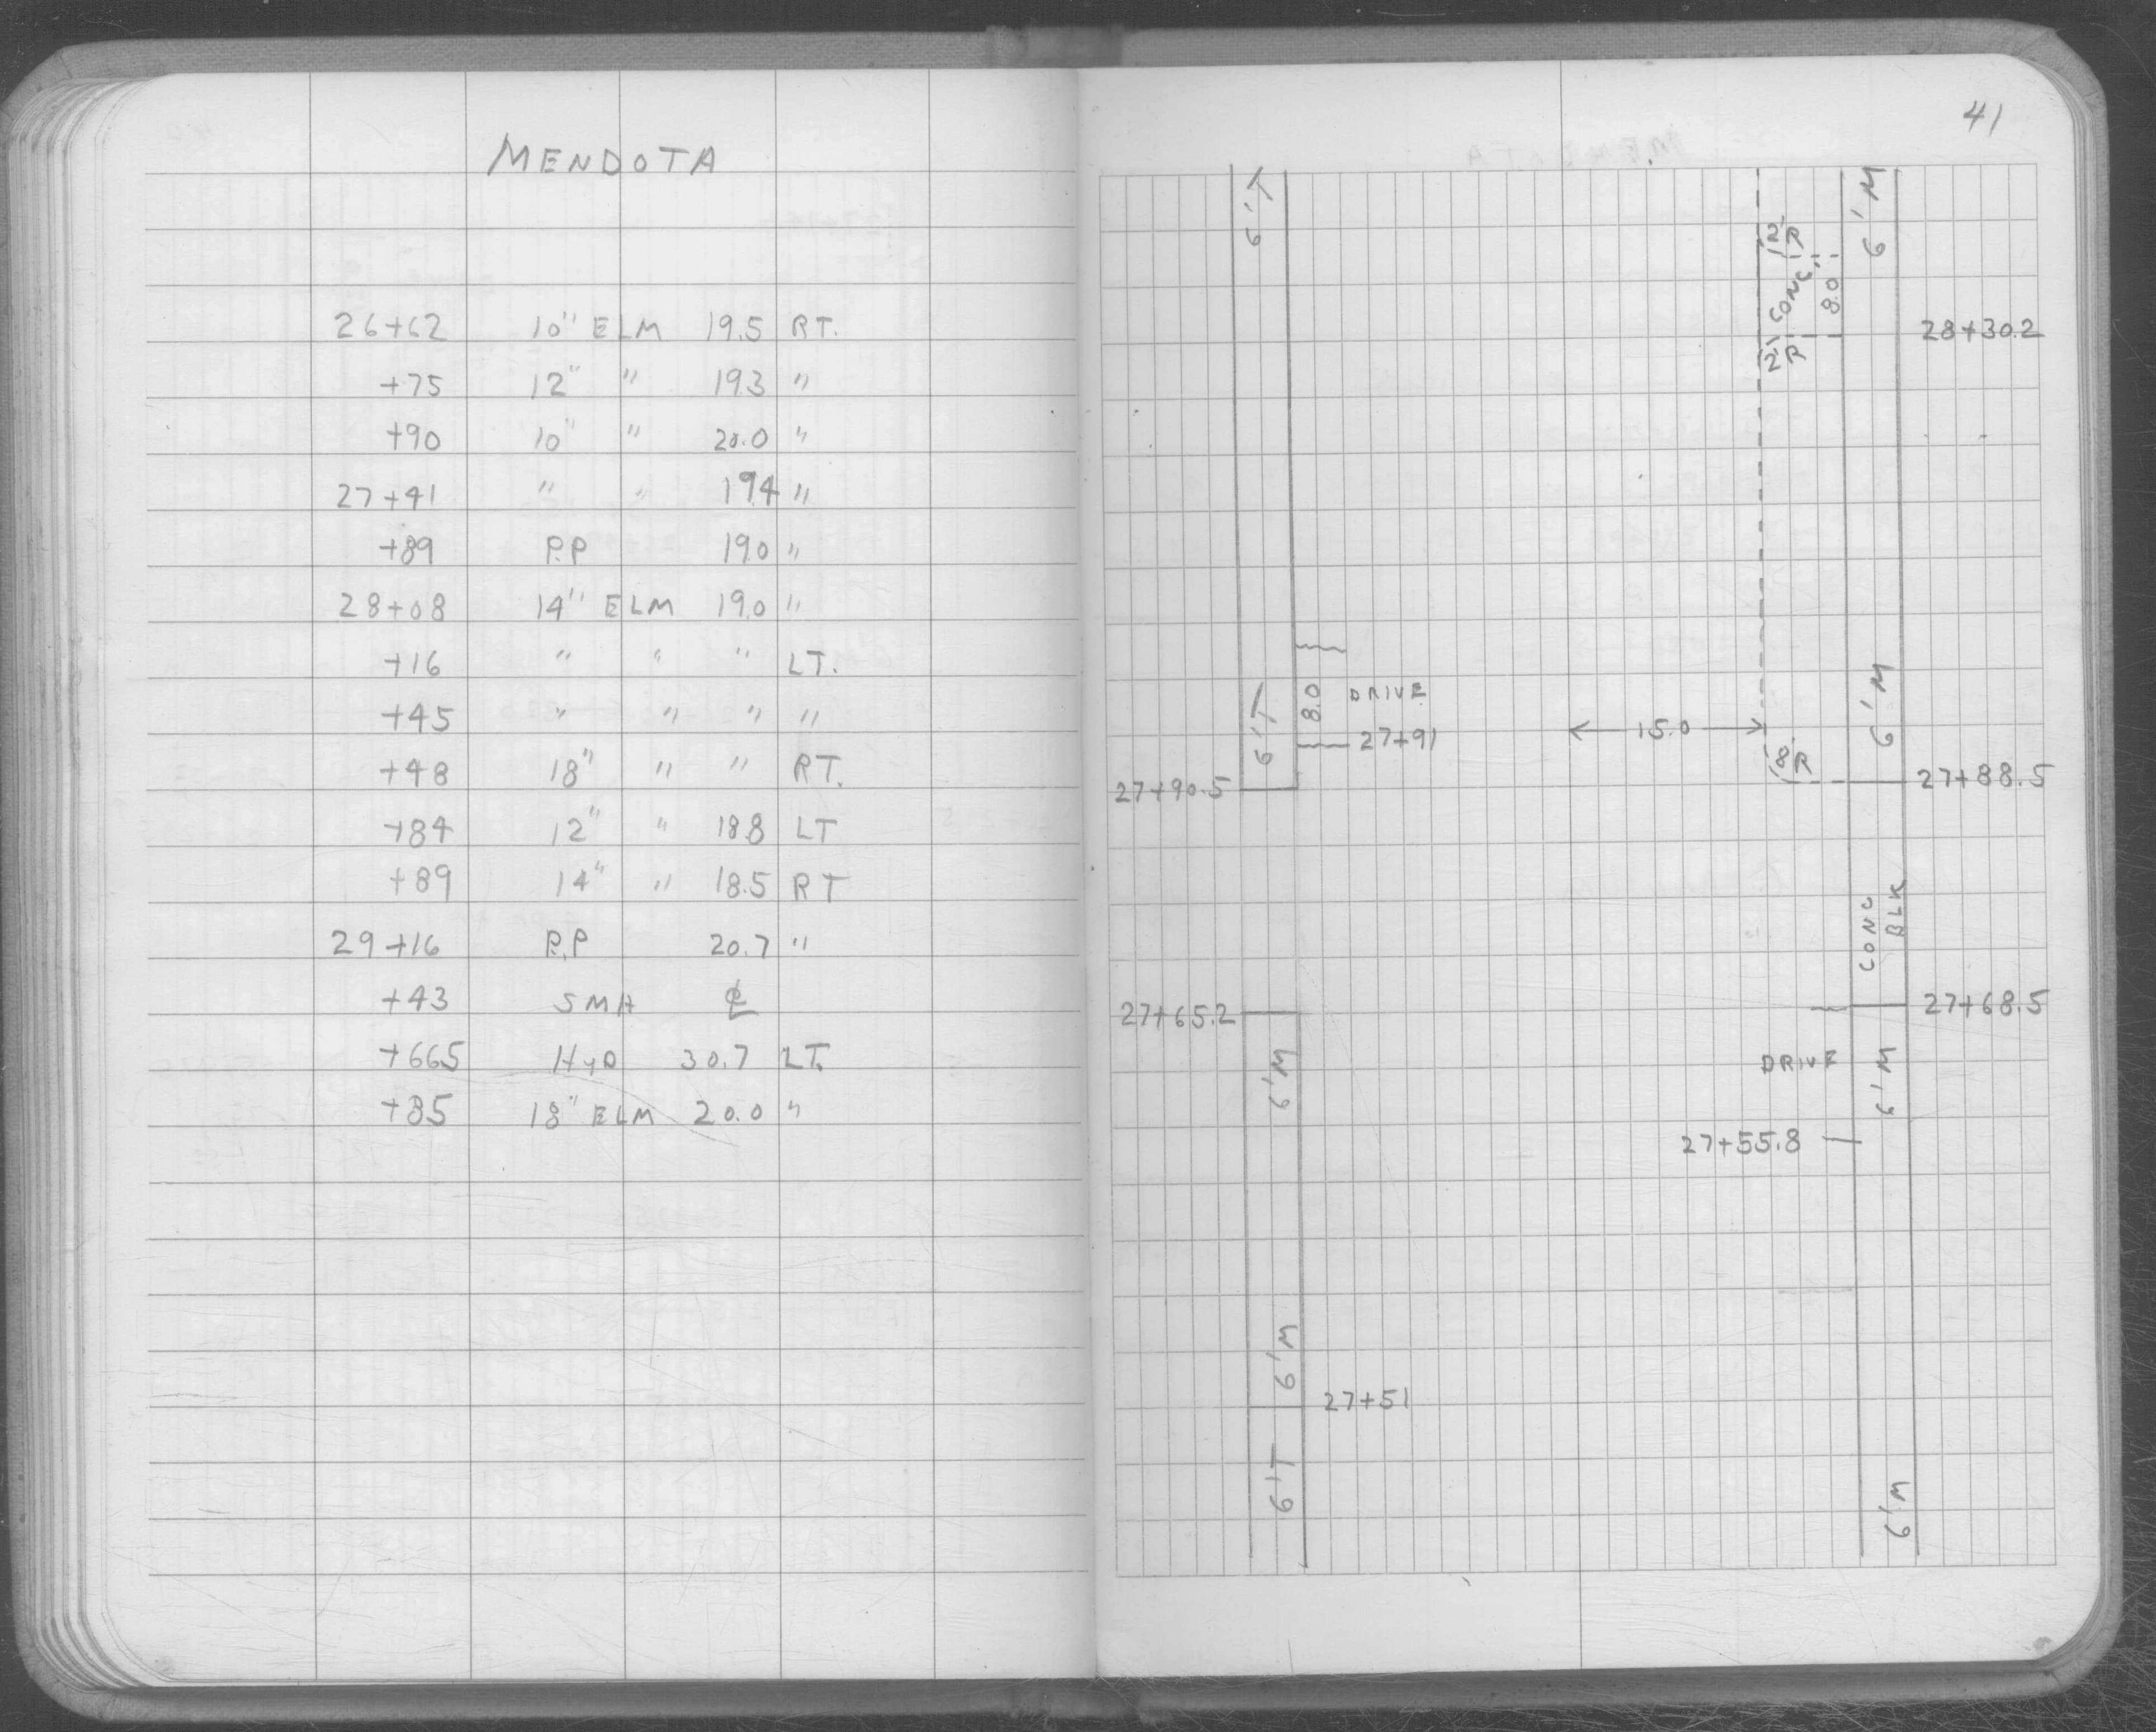 MENDOTA
26+62 10" ELM 19.5 RT.
+75 12" " 19.3 "
+90 10" " 20.0 "
27+41 " " 19.4 "
+89 P.P 19.0 "
28+08 14" ELM 19.0 "
+16 " " " LT.
+45 " " " "
+48 18" " " RT.
+84 12" " 18.8 LT
+89 14" " 18.5 RT
29+16 P.P 20.7 "
+43 SMH ℄
+66.5 HYD 30.7 LT.
+85 18" ELM 20.0 "
41
6'T 6'M
CONC. 8.0
2'R
28+30.2
6'T 8.0 DRIVE 6'M
27+91 15.0
18'R
27+90.5 27+88.5
CONC
BLK
27+65.2 27+68.5
6'M DRIVE 6'M
27+55.8
6'M
27+51
6'T 6'M